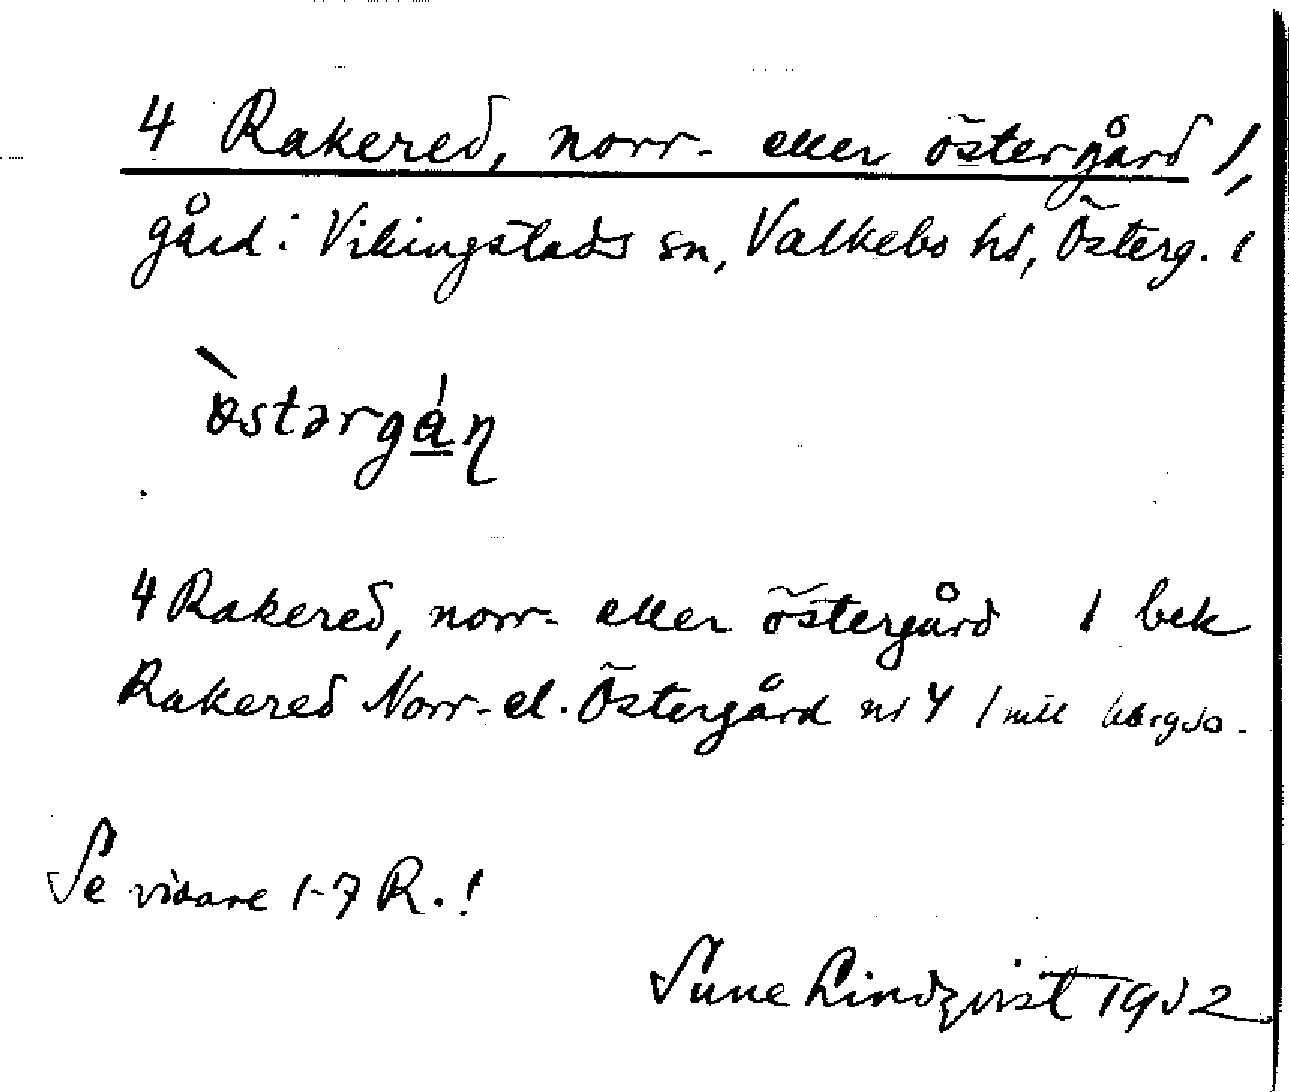 4 Rakered, norr- eller östergård /,
gård i Vikingstads sn, Valkebo hd, Österg. l
östərgán
4 Rakered, norr- eller östergård 1 bek
Rakered Norr- el. Östergård nr 4 /
Se vidare 1-7 R. !
Sune Lindqvist 1912